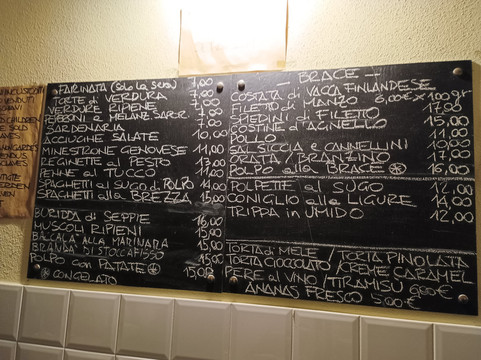 FARINATA (SOLO LA SERA) 7,00
TORTE di VERDURA 7,00
VERDURE RIPENE 9,00
PEPERONI e MELANZ. SAPOR. 7,00
SARDENARIA
ACCIUGHE SALATE 10,00
MINESTRONE GENOVESE 11,00
REGINETTE al PESTO 13,00
PENNE al TUCCO 11,00
SPAGHETTI al SUGO di POLPO 14,00
SPAGHETTI alla BREZZA 15,00
BURIDDA di SEPPIE 16,00
MUSCOLI RIPIENI 15,00
BACCALÀ ALLA MARINARA 15,00
BRANDA di STOCCAFISSO 15,00
POLPO con PATATE * 15,00
* CONGELATO
BRACE
COSTATA di VACCA FINLANDESE 6,00€ x 100 gr
FILETTO di MANZO 17,00
SPIEDINI di FILETTO 15,00
COSTINE d'AGNELLO 11,00
SALSICCIA e CANNELLINI 10,00
ORATA / BRANZINO 17,00
POLPO alla BRACE * 16,00
POLPETTE al SUGO 12,00
CONIGLIO alla LIGURE 14,00
TRIPPA in UMIDO 12,00
TORTA di MELE / TORTA PINOLATA
TORTA CIOCCOLATO / CREME CARAMEL
PERE al VINO / TIRAMISU 6,00€
ANANAS FRESCO 5,00€